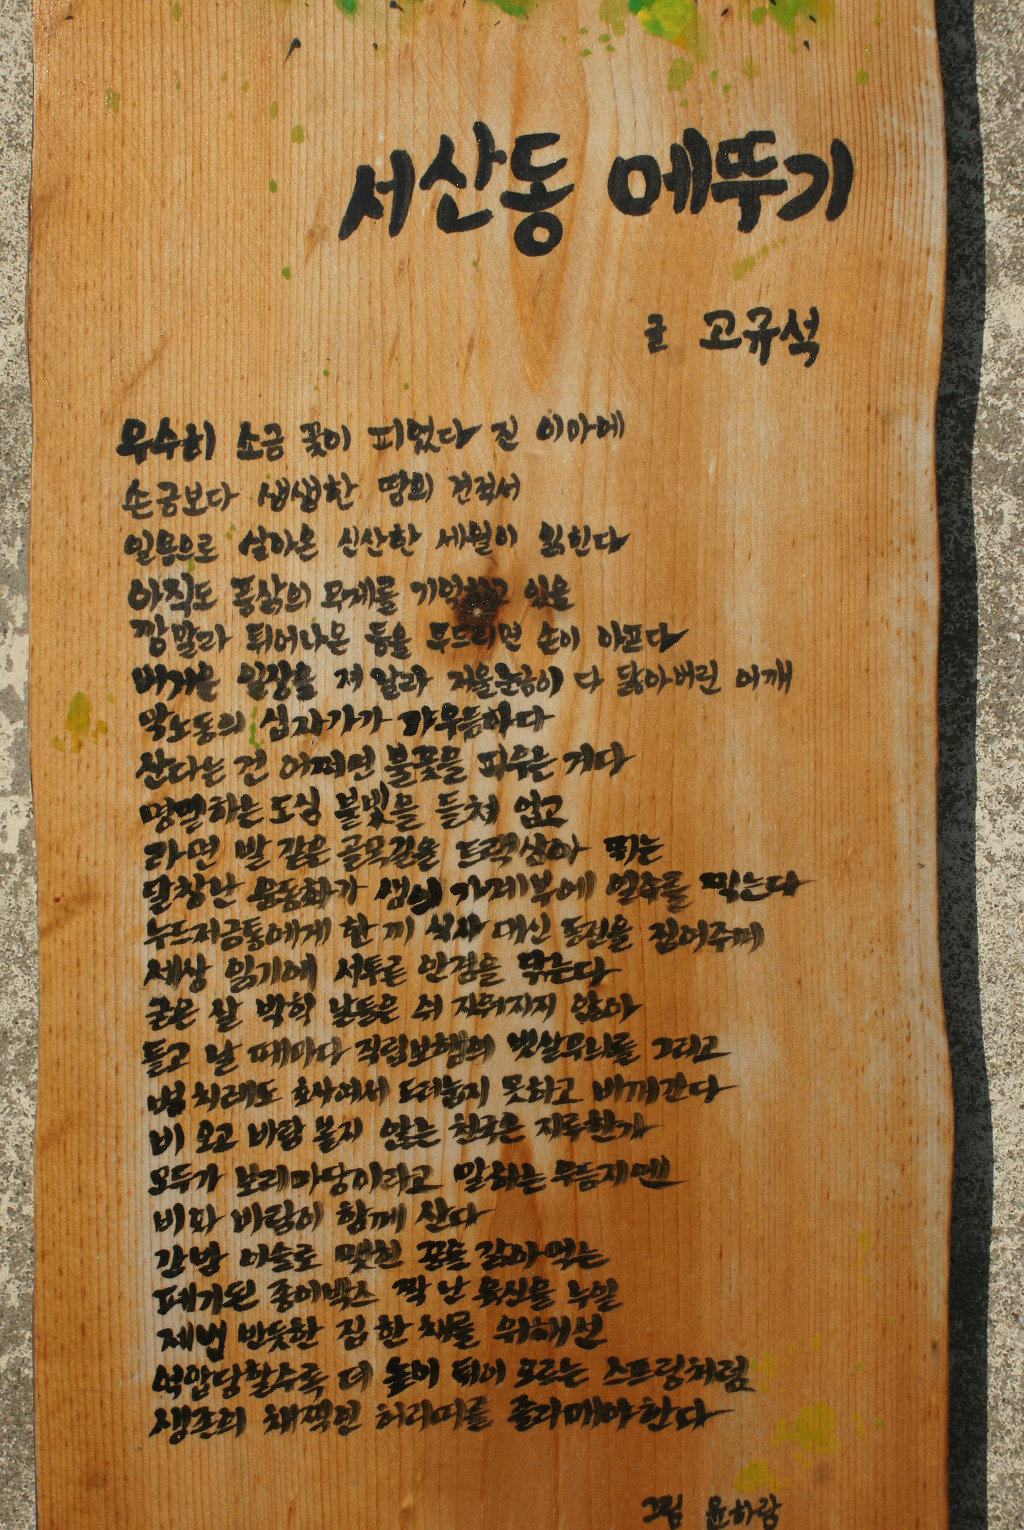 서산동 메뚜기
글 고규석
무수히 소금 꽃이 피었다 진 이마에
손금보다 생생한 땅의 견적서
일용으로 살아온 신산한 세월이 읽힌다
아직도 품삯의 무게를 기억하고 있을
깡말라 튀어나온 등을 두드리면 손이 아프다
버거운 일상을 져 날라 저울눈금이 다 닳아버린 어깨
막노동의 십자가가 갸우뚱하다
산다는 건 어쩌면 불꽃을 피우는 거다
명멸하는 도심 불빛을 들쳐 업고
라면 발 같은 골목길을 트랙삼아 뛰는
닳창난 운동화가 생의 가계부에 일수를 찍는다
누드저금통에게 한 끼 식사 대신 동전을 집어주며
세상 읽기에 서투른 안경을 닦는다
굳은 살 박힌 날들은 쉬 지워지지 않아
들고 날 때마다 직립보행의 빗살무늬를 그리고
볕 치레도 호사여서 드러눕지 못하고 비껴간다
비 오고 바람 불지 않는 천국은 지루한가
모두가 보래마당이라고 말하는 무등지엔
비와 바람이 함께 산다
간밤 이슬로 맺힌 꿈을 갉아먹는
폐기된 종이박스 짝 난 육신을 누일
제법 반듯한 집 한 채를 위해선
억압당할수록 더 높이 튀어 오르는 스프링처럼
생존의 채찍인 허리띠를 졸라매야한다
그림 윤하랑